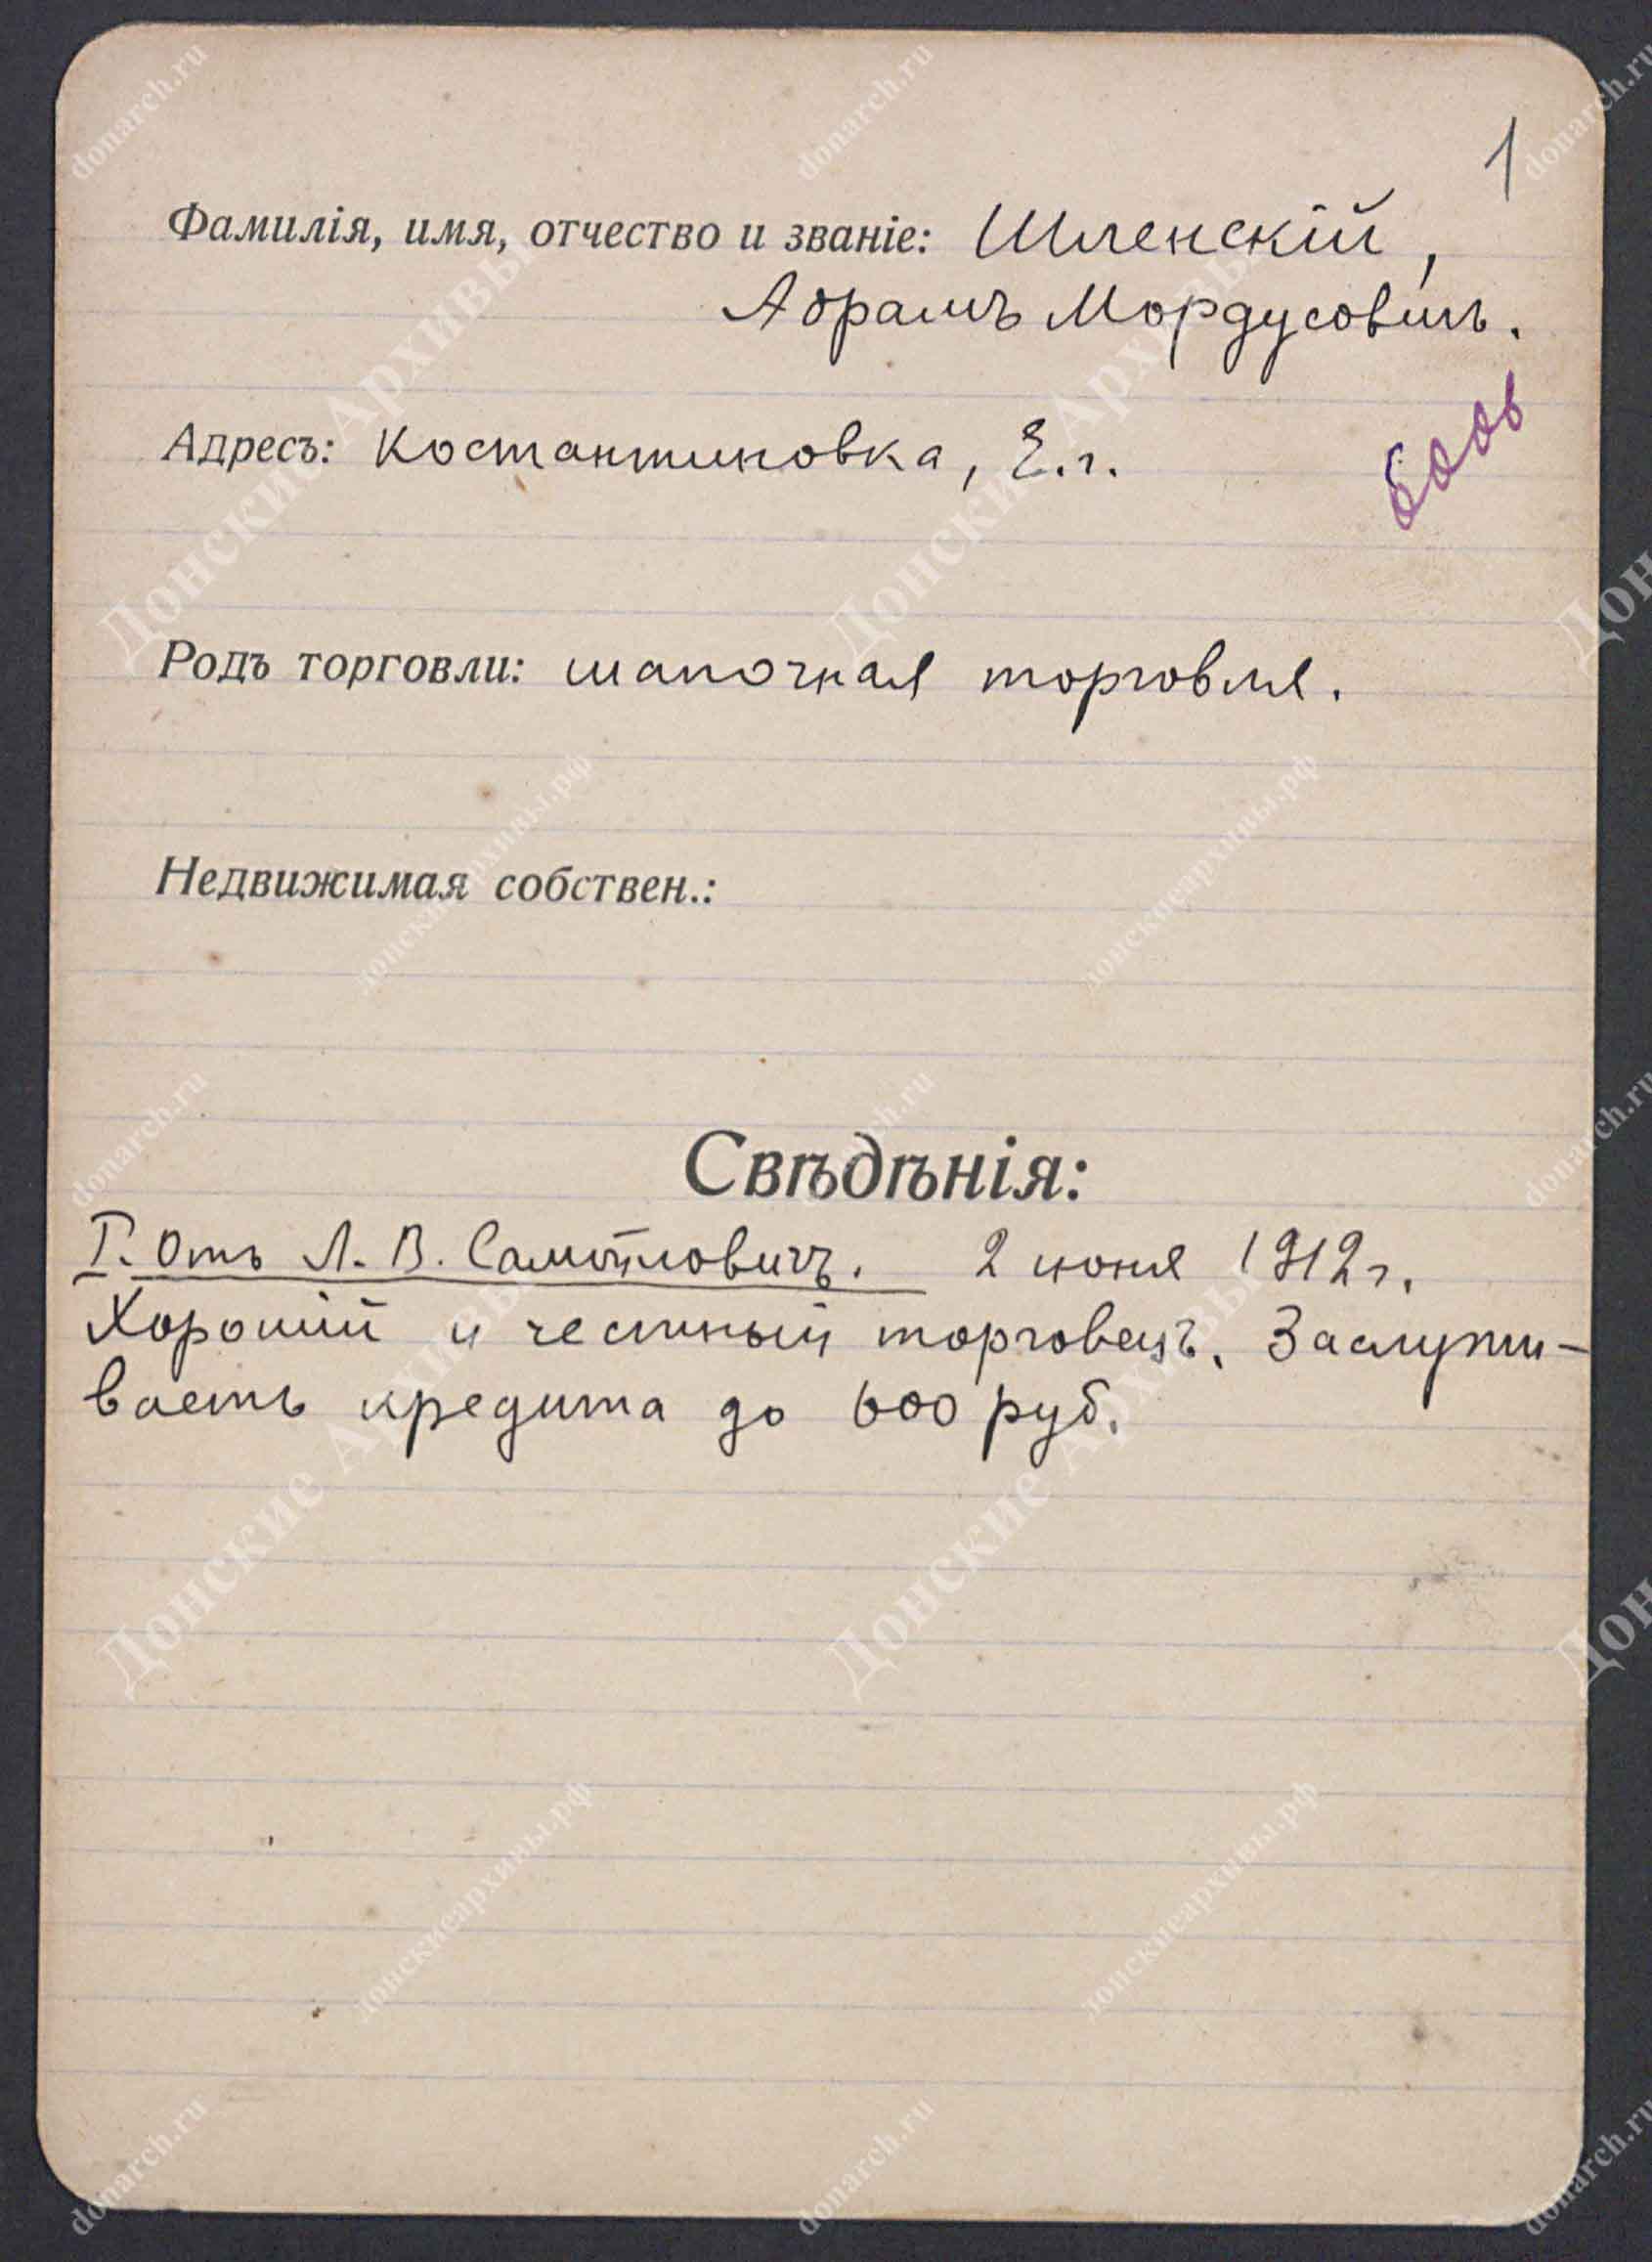 1
Фамилія, имя, отчество и званіе: Шленскій,
Абрамъ Мордусовичъ.
Адресъ: Костантиновка, Е.г.
Родъ торговли: шапочная торговля.
Недвижимая собствен.:
Свѣдѣнія:
I. Отъ Л. В. 2 июня 1912г.
Хорошій и честный торговецъ. Заслужи-
ваетъ кредита до 600 руб.
Донские Архивы
donarch.ru
донскиеархивы.рф